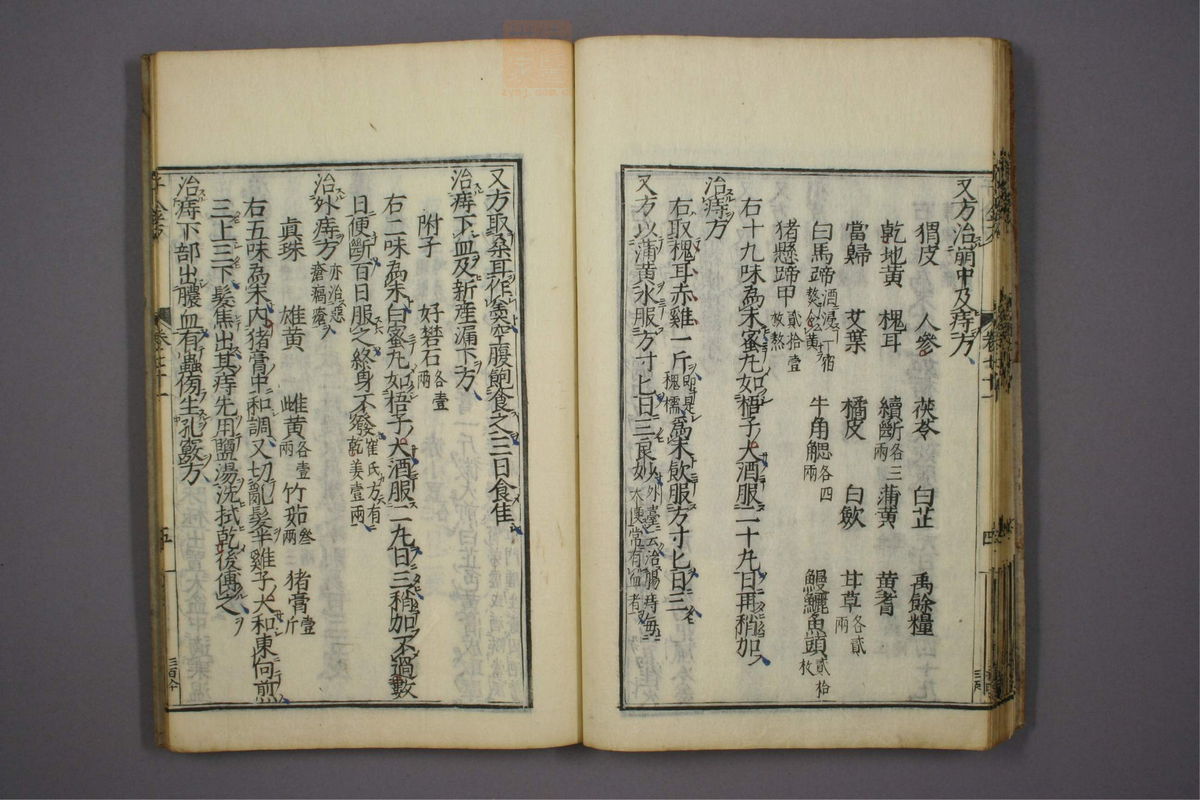 又方治崩中及痔方
猬皮　人參　茯苓　白芷　禹餘糧
乾地黄　槐耳　續斷各三兩　蒲黄　黄耆
當歸　艾葉　橘皮　白歛　甘草各貳兩
白馬蹄酒浸一宿熬令黄　牛角䚡各四兩　鰻鱺魚頭貳拾枚
猪懸蹄甲貳拾壹枚熬
右十九味為末蜜丸如梧子大酒服二十丸日再稍加
治痔方
右取槐耳赤雞一斤即是槐檽為末飲服方寸匕日三
又方以蒲黄水服方寸匕日三良妙外臺云治腸痔每大便常有血者
又方取桑耳作羹空腹飽食之三日食佳
治痔下血及新産漏下方
附子　好礬石各壹兩
右二味為末白蜜丸如梧子大酒服二丸日三稍加不過數
日便斷百日服之終身不發崔氏方有乾姜壹兩
治外痔方亦治惡瘡瘑瘡
眞珠　雄黄　雌黄各壹兩　竹茹叁兩　猪膏壹斤
右五味為末内猪膏中和調又切亂髮半雞子大和東向煎
三上三下髮焦出其痔先用鹽湯洗拭乾後傅之
治痔下部出膿血有蟲傍生孔竅方
卷二十一
五